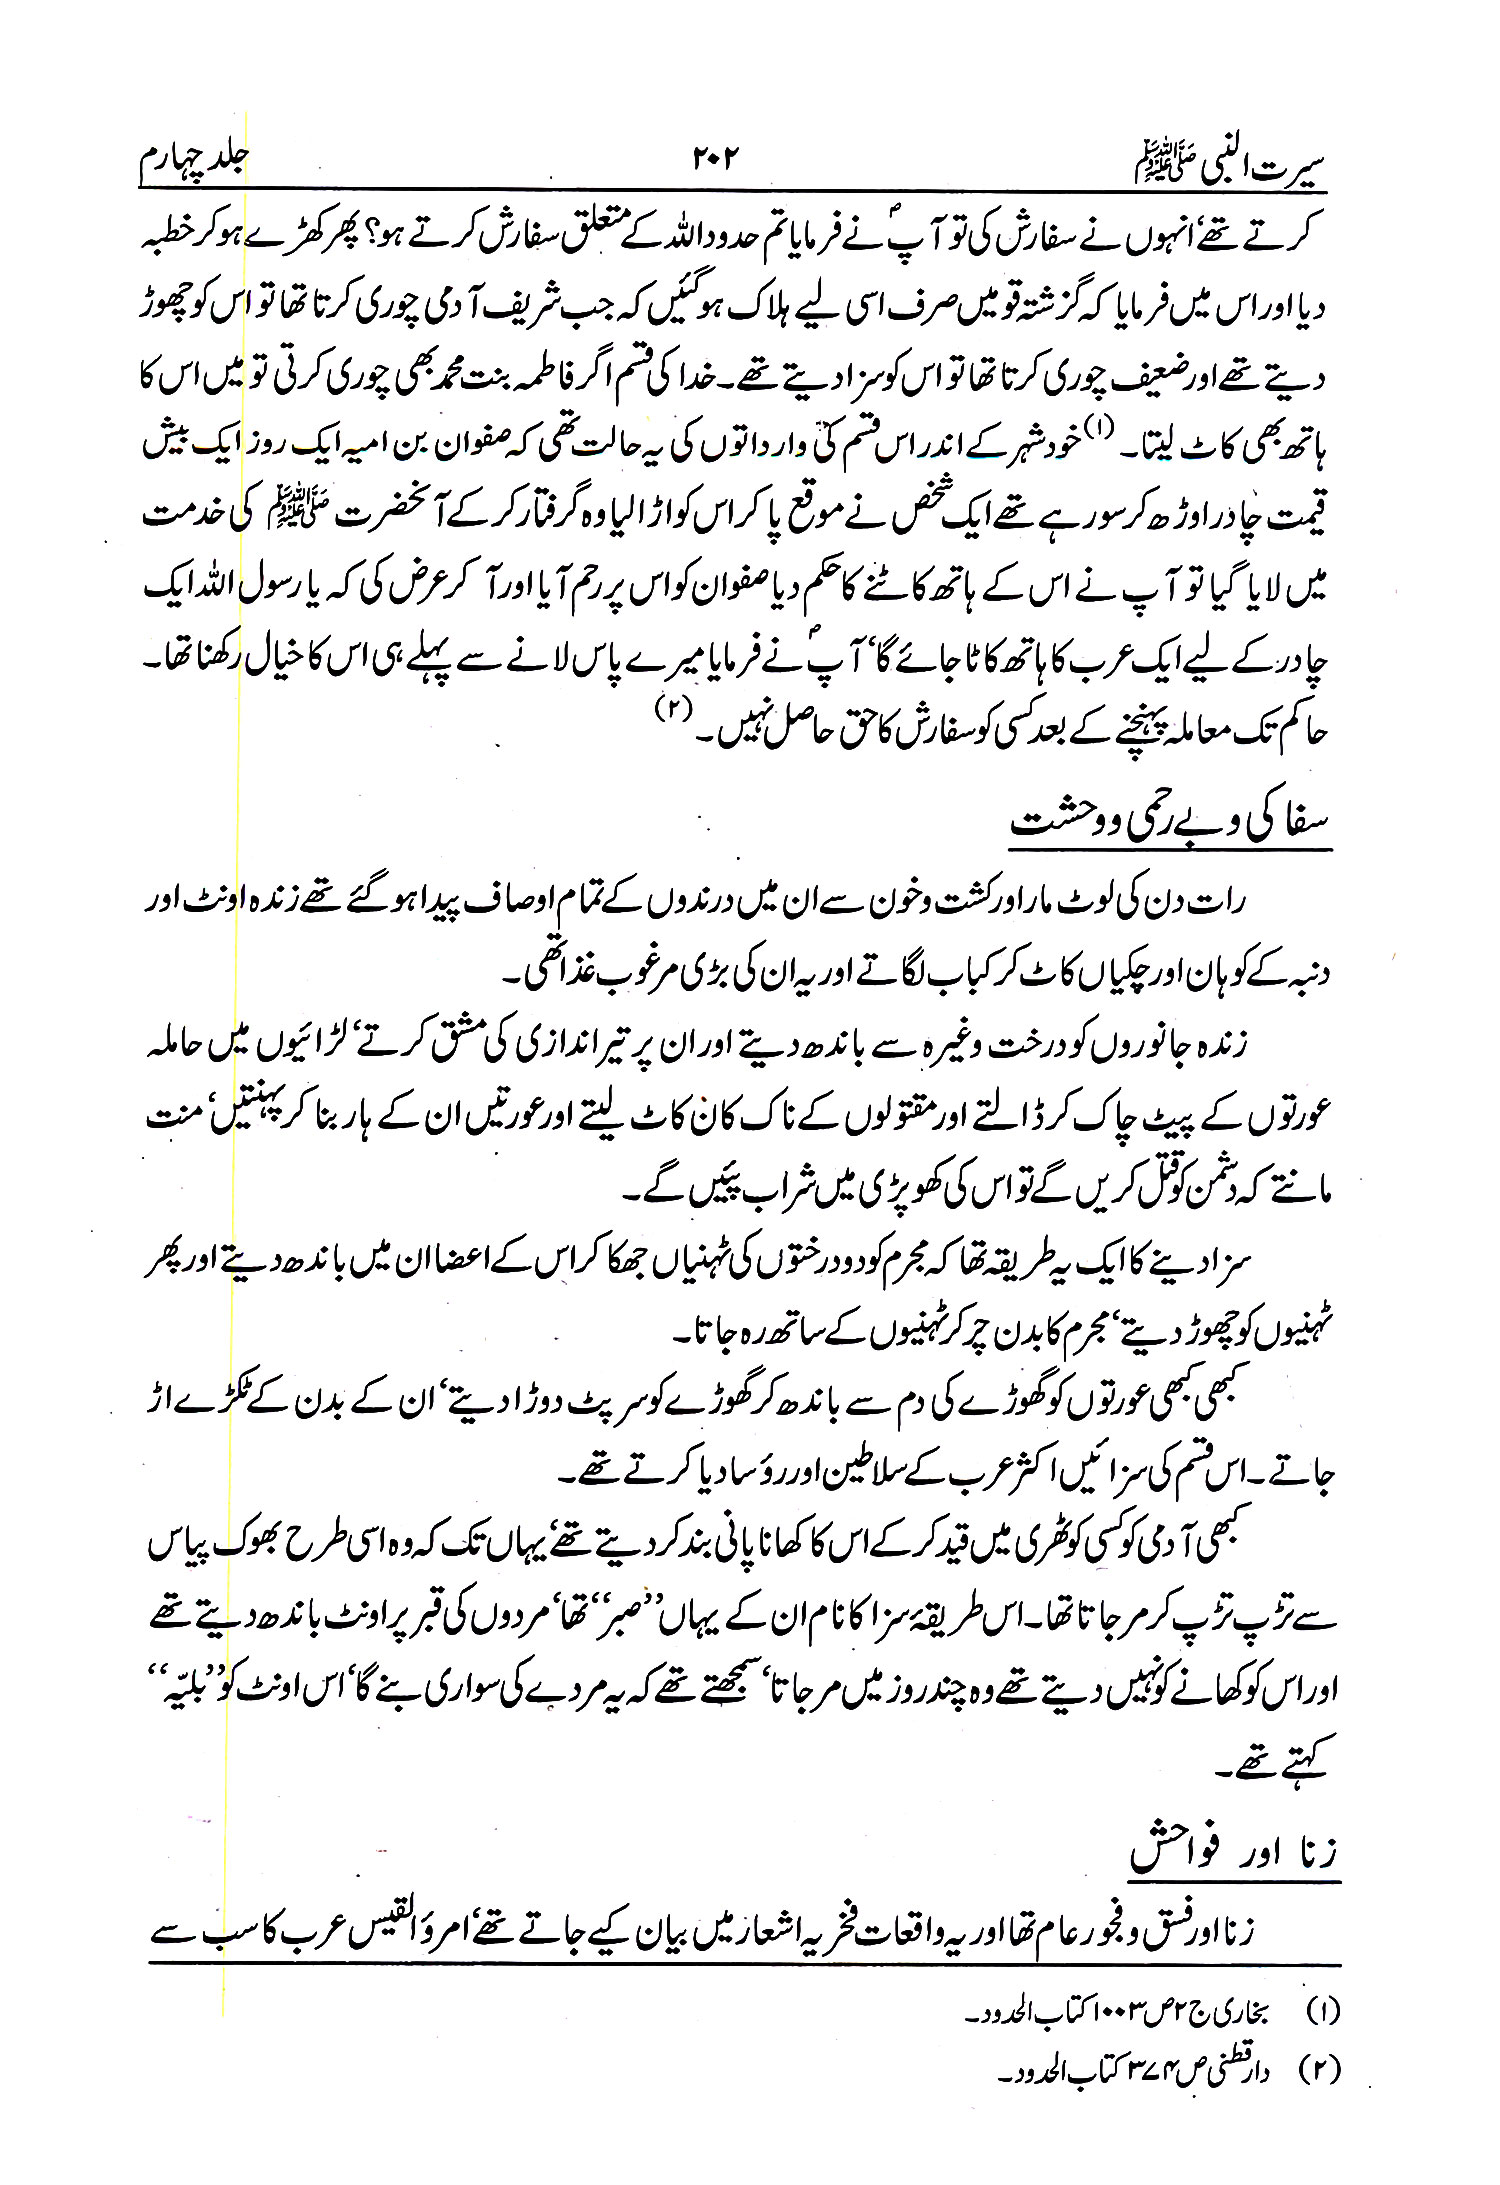 سیرت النبی ﷺ ۲۰۲ جلد چہارم
کرتے تھے‘ انہوں نے سفارش کی تو آپؐ نے فرمایا تم حدود اللہ کے متعلق سفارش کرتے ہو؟ پھر کھڑے ہو کر خطبہ
دیا اور اس میں فرمایا کہ گزشتہ قومیں صرف اسی لیے ہلاک ہو گئیں کہ جب شریف آدمی چوری کرتا تھا تو اس کو چھوڑ
دیتے تھے اور ضعیف چوری کرتا تھا تو اس کو سزا دیتے تھے۔ خدا کی قسم اگر فاطمہ بنت محمد بھی چوری کرتی تو میں اس کا
ہاتھ بھی کاٹ لیتا۔ (۱) خود شہر کے اندر اس قسم کی وارداتوں کی یہ حالت تھی کہ صفوان بن امیہ ایک روز ایک بیش
قیمت چادر اوڑھ کر سو رہے تھے ایک شخص نے موقع پا کر اس کو اڑا لیا وہ گرفتار کر کے آنحضرت ﷺ کی خدمت
میں لایا گیا تو آپ نے اس کے ہاتھ کاٹنے کا حکم دیا صفوان کو اس پر رحم آیا اور آ کر عرض کی کہ یا رسول اللہ ایک
چادر کے لیے ایک عرب کا ہاتھ کاٹا جائے گا‘ آپؐ نے فرمایا میرے پاس لانے سے پہلے ہی اس کا خیال رکھنا تھا۔
حاکم تک معاملہ پہنچنے کے بعد کسی کو سفارش کا حق حاصل نہیں۔ (۲)
سفاکی و بے رحمی و وحشت
رات دن کی لوٹ مار اور کشت و خون سے ان میں درندوں کے تمام اوصاف پیدا ہو گئے تھے زندہ اونٹ اور
دنبہ کے کوہان اور چکیاں کاٹ کر کباب لگاتے اور یہ ان کی بڑی مرغوب غذا تھی۔
زندہ جانوروں کو درخت وغیرہ سے باندھ دیتے اور ان پر تیر اندازی کی مشق کرتے‘ لڑائیوں میں حاملہ
عورتوں کے پیٹ چاک کر ڈالتے اور مقتولوں کے ناک کان کاٹ لیتے اور عورتیں ان کے ہار بنا کر پہنتیں‘ منت
مانتے کہ دشمن کو قتل کریں گے تو اس کی کھوپڑی میں شراب پئیں گے۔
سزا دینے کا ایک یہ طریقہ تھا کہ مجرم کو دو درختوں کی ٹہنیاں جھکا کر اس کے اعضا ان میں باندھ دیتے اور پھر
ٹہنیوں کو چھوڑ دیتے‘ مجرم کا بدن چر کر ٹہنیوں کے ساتھ رہ جاتا۔
کبھی کبھی عورتوں کو گھوڑے کی دم سے باندھ کر گھوڑے کو سرپٹ دوڑا دیتے‘ ان کے بدن کے ٹکڑے اڑ
جاتے۔ اس قسم کی سزائیں اکثر عرب کے سلاطین اور رؤسا دیا کرتے تھے۔
کبھی آدمی کو کسی کوٹھری میں قید کر کے اس کا کھانا پانی بند کر دیتے تھے‘ یہاں تک کہ وہ اسی طرح بھوک پیاس
سے تڑپ تڑپ کر مر جاتا تھا۔ اس طریقۂ سزا کا نام ان کے یہاں ’’صبر‘‘ تھا‘ مردوں کی قبر پر اونٹ باندھ دیتے تھے
اور اس کو کھانے کو نہیں دیتے تھے وہ چند روز میں مر جاتا‘ سمجھتے تھے کہ یہ مردے کی سواری بنے گا‘ اس اونٹ کو ’’بلیّہ‘‘
کہتے تھے۔
زنا اور فواحش
زنا اور فسق و فجور عام تھا اور یہ واقعات فخریہ اشعار میں بیان کیے جاتے تھے‘ امرؤ القیس عرب کا سب سے
(۱) بخاری ج ۲ ص ۱۰۰۳ کتاب الحدود۔
(۲) دار قطنی ص ۳۷۴ کتاب الحدود۔